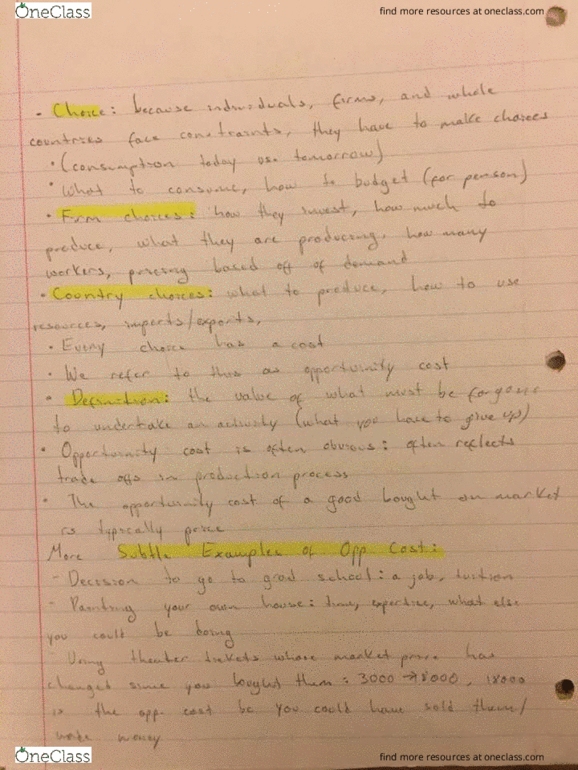 OneClass
find more resources at oneclass.com
- Choice: because individuals, firms, and whole
countries face constraints, they have to make choices
• (consumption today vs. tomorrow)
• What to consume, how to budget (for person)
• Firm choices: how they invest, how much to
produce, what they are producing, how many
workers, pricing based off of demand
• Country choices: what to produce, how to use
resources, imports/exports,
• Every choice has a cost
• We refer to this as opportunity cost
• Definition: the value of what must be forgone
to undertake an activity (what you have to give up)
• Opportunity cost is often obvious: often reflects
trade offs in production process
• The opportunity cost of a good bought on market
is typically price
More Subtle Examples of Opp Cost:
- Decision to go to grad school: a job, tuition
- Painting your own house: time, expertise, what else
you could be doing
- Using theater tickets whose market price has
changed since you bought them: 3000 → 18000, 18000
is the opp. cost bc you could have sold them/
make money
OneClass
find more resources at oneclass.com